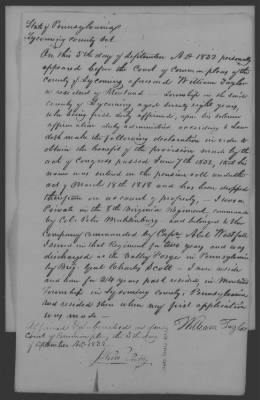 State of Pennsylvania
Lycoming county ss.
On this 5th day of September A.D. 1832 personally
appeared before the Court of Common pleas of the
County of Lycoming aforesaid William Taylor
a resident of Township in the said
county of Lycoming aged seventy eight years,
who being first duly affirmed, upon his solemn
affirmation duly administered according to law
doth make the following declaration in order to
obtain the benefit of the provision made by the
act of Congress passed June 7th 1832, that he
name was entered on the pension roll under the
act of March 18th 1818 and has been dropped
therefrom on account of property, – I was a
Private in the 8th Virginia Regiment, commanded
by Col. John Muhlenburg and belonged to the
Company commanded by Captn Abel Westfall
I served in that Regiment for two years and was
discharged at the Valley Forge in Pennsylvania
by Brig. Genl Charles Scott – I now reside
and have for 24 years past resided in
Township in Lycoming county, Pennsylvania
and resided there when my first application
was made –
Affirmed & subscribed in open
Court of Common pleas the 5th day
of September A.D. 1832
William Taylor